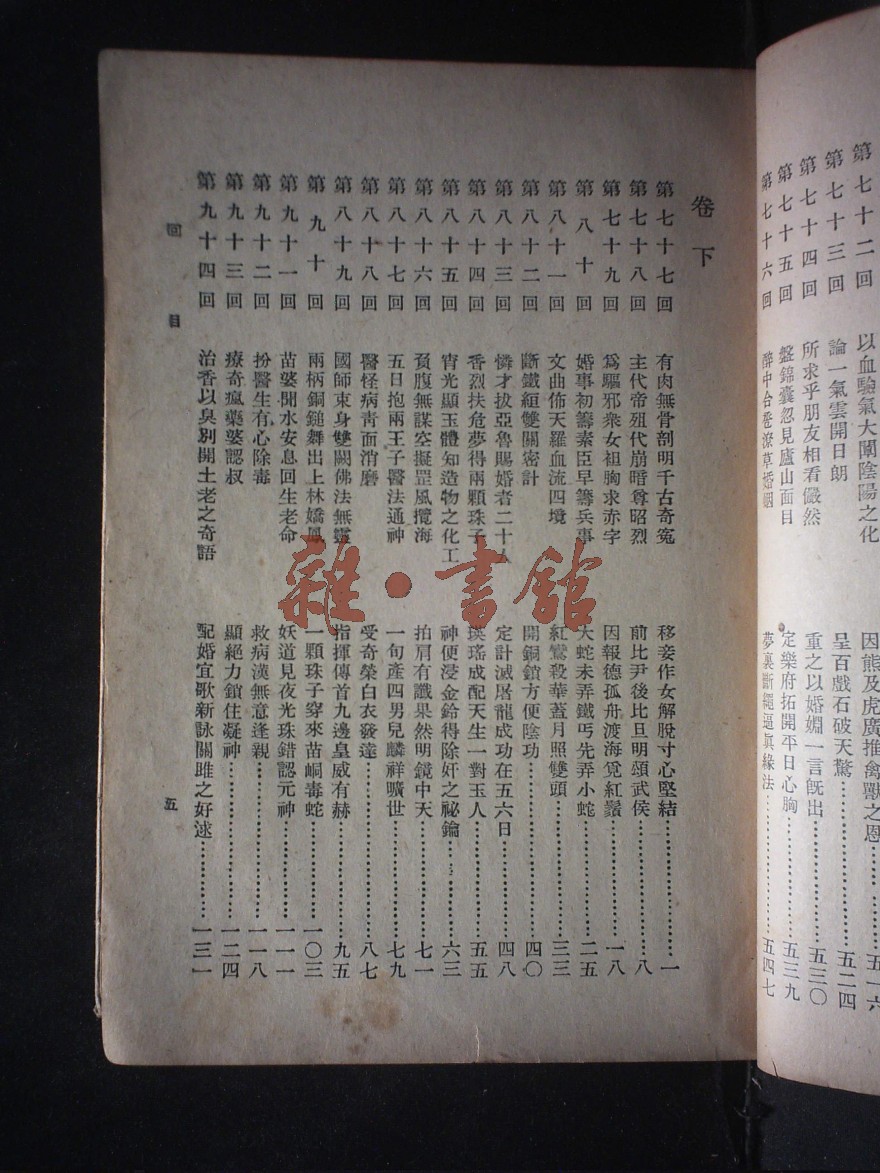 第七十二回 以血驗氣大闡陰陽之化 因熊及虎廣推禽獸之恩……五一六
第七十三回 論一氣雲開日朗 呈百戲石破天驚……五二四
第七十四回 所求乎朋友相看儼然 重之以婚媾一言旣出……五三〇
第七十五回 盤錦囊忽見廬山面目 定樂府拓開平日心胸……五三九
第七十六回 醉中合卺潦草婚姻 夢裏斷繩逼眞緣法……五四七
卷下
第七十七回 有肉無骨剖明千古奇寃 移妾作女解脫寸心堅結……一
第七十八回 主代帝殂代崩暗尊昭烈 前比尹後比旦明頌武侯……八
第七十九回 爲驅邪衆女袒胸求赤字 因報德孤舟渡海覓紅鬚……一八
第八十回 婚事初籌素臣早籌兵事 大蛇未弄鐵丐先弄小蛇……二五
第八十一回 文曲佈天羅血流四境 紅鸞殺華蓋月照雙頭……三三
第八十二回 斷鐵絙雙關密計 開銅鎖方便陰功……四〇
第八十三回 憐才拔亞魯賜婚者二十人 定計滅屠龍成功在五六日……四八
第八十四回 香烈扶危夢得兩顆珠子 瑛瑤成配天生一對玉人……五五
第八十五回 宵光顯玉體知造物之化工 神便浸金鈴得除奸之祕鑰……六三
第八十六回 貧腹無謀空擬罡風攪海 拍肩有讖果然明鏡中天……七一
第八十七回 五日抱兩王子醫法通神 一旬產四男兒麟祥曠世……七九
第八十八回 醫怪病靑面消磨 受奇榮白衣發達……八七
第八十九回 國師束身雙闕佛法無靈 指揮傳首九邊皇威有赫……九五
第九十回 兩柄銅鎚舞出上林嬌鳳 一顆珠子穿來苗峒毒蛇……一〇三
第九十一回 苗婆聞水安息回生老命 妖道見夜光珠錯認元神……一一一
第九十二回 扮醫生有心除毒 救病漢無意逢親……一一八
第九十三回 療奇瘋藥婆認叔 顯絕力鎖住凝神……一二四
第九十四回 治香以臭別開土老之奇語 配婚宜歌新詠關雎之好逑……一三一
回目
五
雜·書館